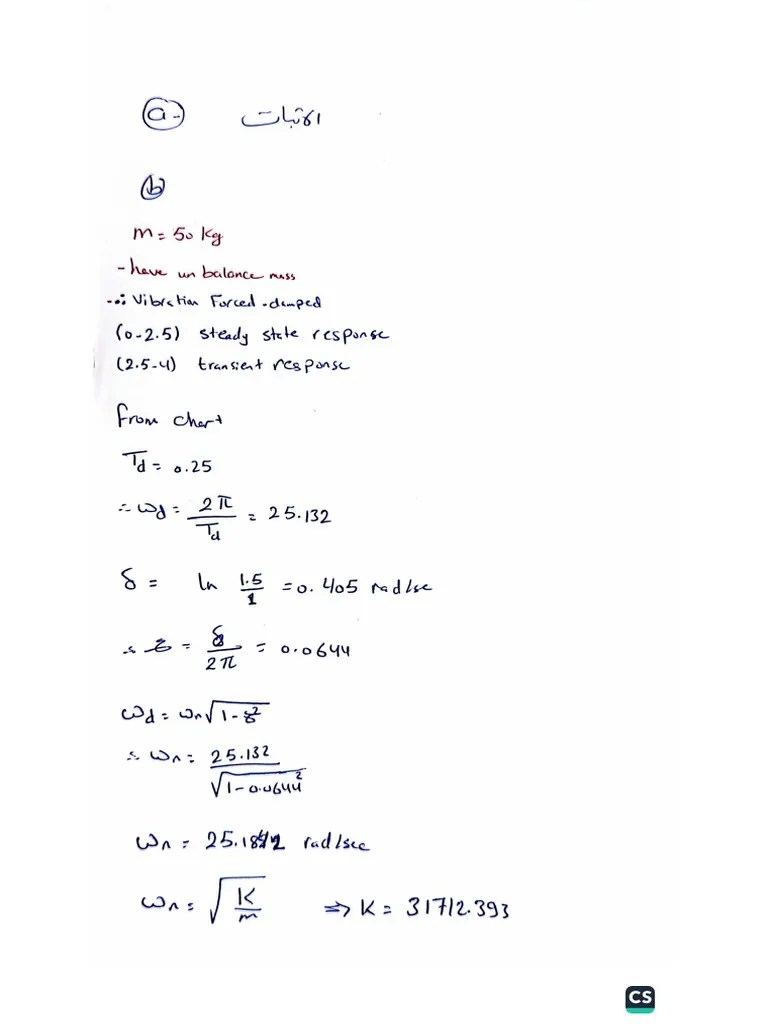 a- الاثبات
b
m = 50 kg
- have un balance mass
-∴ Vibration Forced-damped
(0-2.5) steady state response
(2.5-4) transient response
From chart
Td = 0.25
∴ ωd = 2π / Td = 25.132
δ = ln 1.5/1 = 0.405 rad/sec
∴ ξ = δ / 2π = 0.0644
ωd = ωn √(1-ξ²)
∴ ωn = 25.132 / √(1-0.0644²)
ωn = 25.1842 rad/sec
ωn = √(K/m) ⇒ K = 31712.393
CS